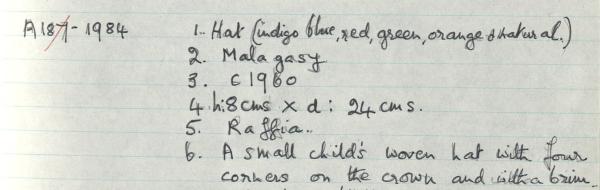 A187-1984 1.. Hat (indigo blue, red, green, orange & natural.)
2. Malagasy
3. c 1960
4. h:8cms x d: 24cms.
5. Raffia..
6. A small child's woven hat with four
corners on the crown and with a brim.